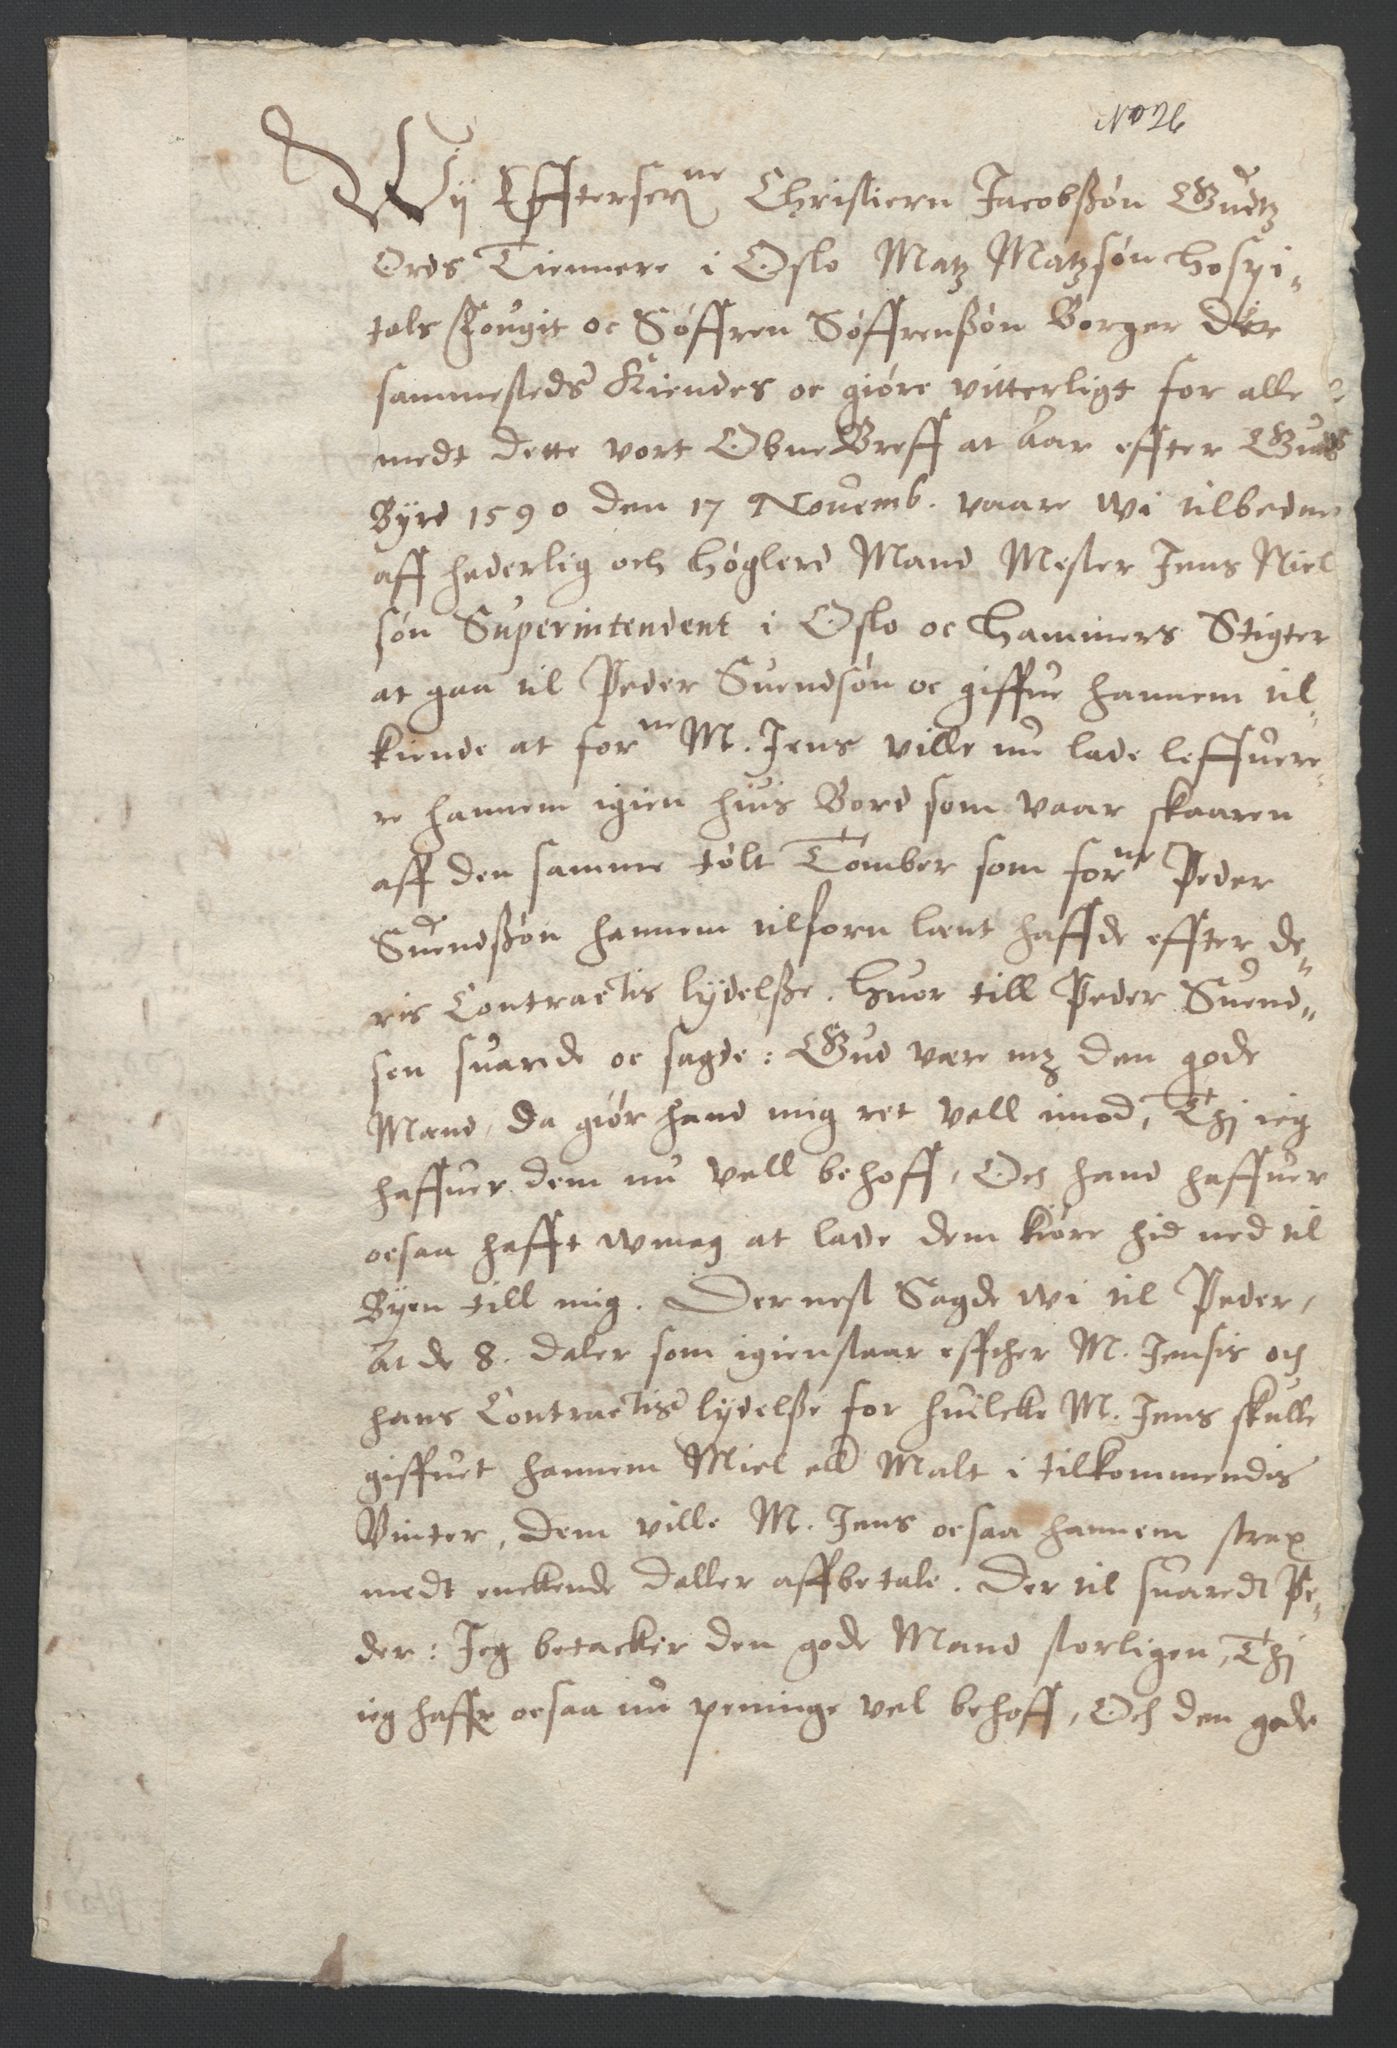 No 26
Wij Effterscr:ne Christiern Jacobßøn Gudtz
Ords Tiennere i Oslo Matz Matzsøn Hospi„
tals Fougit oc Søffren Søffrenßøn Borger der
sammesteds Kiendes oc giøre vitterligt for alle
medt dette vort Obne Breff at Aar effter Guds
Byrd 1590 den 17 Nouemb. vaare wi tilbedne
aff hederlig och Høglerd Mand Mester Jens Niel
søn Superintendent i Oslo oc Hammers Stigter
at gaa til Peder Suendsøn oc giffue hannem til„
kiende at forne M. Jens ville nu lade leffuere„
re hannem igien huis Bord som vaar skaaren
aff den samme tølt Tømber som forne Peder
Suendßøn hannem tilforn lænt haffde effter de„
ris Contractis lydelße. Huor till Peder Suend„
sen suarede oc sagde: Gud være mz den gode
Mand, da giør hand mig ret vell imod, Thj ieg
haffuer dem nu vell behoff, Och hand haffuer
ocsaa hafft wmag at lade dem kiøre hid ned til
Byen till mig. Dernest Sagde wi til Peder,
At de 8. daler som igienstaar effther M. Jensis och
hans Contractis lydelße for huilcke M. Jens skulle
giffuet hannem Miel ell Malt i tilkommendis
Vinter, dem ville M. Jens ocsaa hannem strax
medt enckende daller affbetale. Der til suarede Pe„
der: Jeg betacker den gode Mand storligen, Thj
ieg haffr ocsaa nu peninge vel behoff, Och den gode